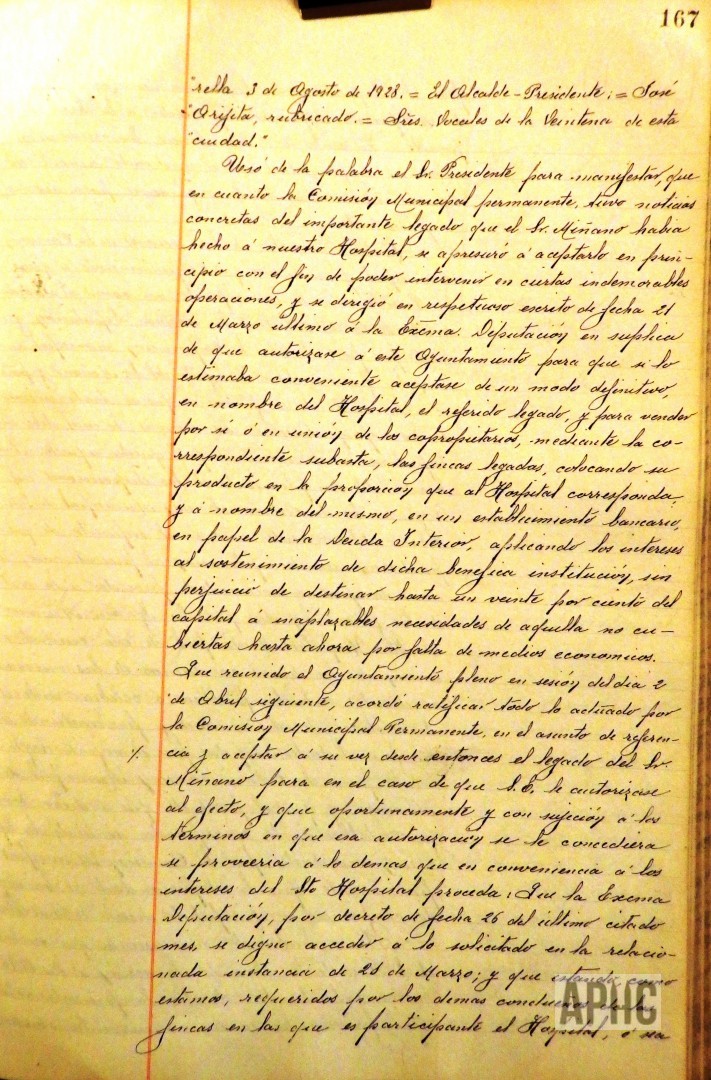 167
"rella 3 de Agosto de 1928. = El Alcalde-Presidente: = José
"Arijita, rubricado. = Sres. Vocales de la Veintena de esta
"ciudad."
Usó de la palabra el Sr. Presidente para manifestar, que
en cuanto la Comisión Municipal permanente, tuvo noticias
concretas del importante legado que el Sr. Miñano habia
hecho á nuestro Hospital, se apresuró á aceptarlo en prin-
cipio con el fin de poder intervenir en ciertas indemorables
operaciones, y se dirigió en respetuoso escrito de fecha 21
de Marzo último á la Excma. Diputación en suplica
de que autorizase á este Ayuntamiento para que si lo
estimaba conveniente aceptase de un modo definitivo,
en nombre del Hospital, el referido legado, y para vender
por sí ó en unión de los copropietarios, mediante la co-
rrespondiente subasta, las fincas legadas, colocando su
producto en la proporción que al Hospital corresponda,
y á nombre del mismo, en un establecimiento bancario,
en papel de la Deuda Interior, aplicando los intereses
al sostenimiento de dicha benefica institución, sin
perjuicio de destinar hasta un veinte por ciento del
capital á inaplazables necesidades de aquella no cu-
biertas hasta ahora por falta de medios economicos.
Que reunido el Ayuntamiento pleno en sesión del dia 2
de Abril siguiente, acordó ratificar todo lo actuado por
la Comisión Municipal Permanente, en el asunto de referen-
cia y aceptar á su vez desde entonces el legado del Sr.
Miñano para en el caso de que S.E. le autorizase
al efecto, y que oportunamente y con sujeción á los
terminos en que esa autorización se le concediera
se proveeria á lo demas que en conveniencia á los
intereses del Sto Hospital proceda: Que la Excma
Diputación, por decreto de fecha 26 del último citado
mes, se digno acceder á lo solicitado en la relacio-
nada instancia de 21 de Marzo; y que estando como
estamos, requeridos por los demas condueños de las
fincas en las que es participante el Hospital, ó sea
APHC